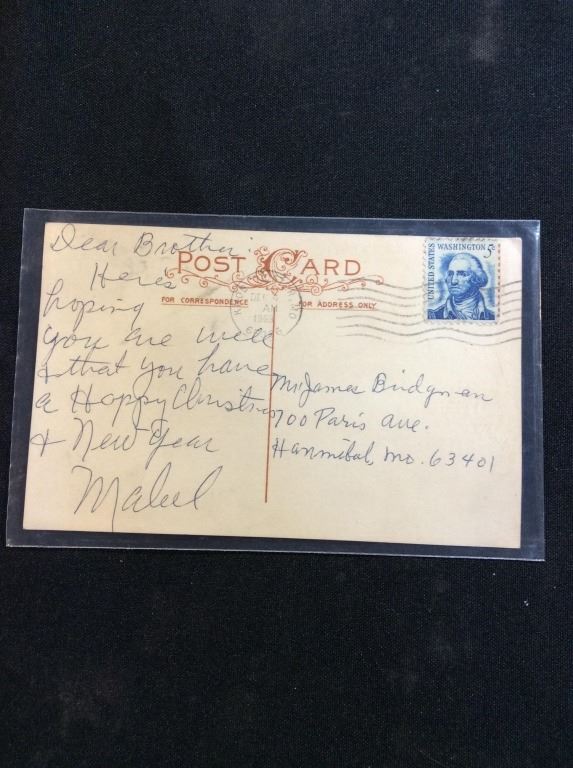 Dear Brother:
Here's
hoping
you are well
& that you have
a Happy Christmas
& New Year
Mabel
POST CARD
FOR CORRESPONDENCE
FOR ADDRESS ONLY
DEC
AM
UNITED STATES
WASHINGTON 5c
Mr James Bridgman
700 Paris Ave.
Hannibal, Mo. 63401